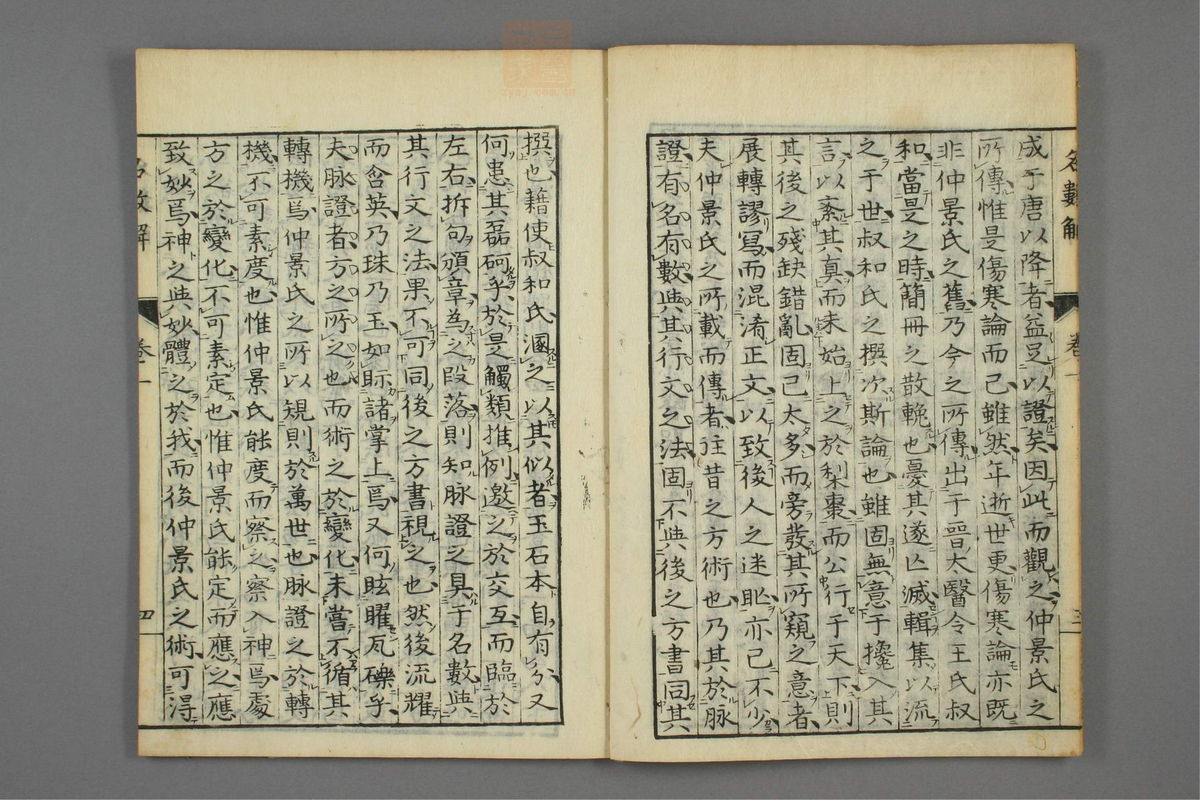 名數解 卷一 三
成于唐以降者益足以證矣因此而觀之仲景氏之
所傳惟是傷寒論而已雖然年逝世更傷寒論亦既
非仲景氏之舊乃今之所傳出于晉太醫令王氏叔
和當是之時簡冊之散輓也憂其遂亡滅輯集以流
之于世叔和氏之撰次斯論也雖固無意于攙入其
言以紊其真而未始上之於梨棗而公行于天下則
其後之殘缺錯亂固已太多而旁發其所窺之意者
展轉謬寫而混淆正文以致後人之迷眩亦已不少
夫仲景氏之所載而傳者往昔之方術也乃其於脉
證有名有數與其行文之法固不與後之方書同其
撰也藉使叔和氏溷之以其似者玉石本自有分又
何患其磊砢乎於是觸類推例邀之於交互而臨於
左右拆句頒章為之段落則知脉證之具于名數與
其行文之法果不可同後之方書視之也然後流耀
而含英乃珠乃玉如眎諸掌上焉又何眩曜瓦礫乎
夫脉證者方之所之也而術之於變化未嘗不循其
轉機焉仲景氏之所以規則於萬世也脉證之於轉
機不可素度也惟仲景氏能度而察之察入神焉處
方之於變化不可素定也惟仲景氏能定而應之應
致妙焉神之與妙體之於我而後仲景氏之術可得
名數解 卷一 四